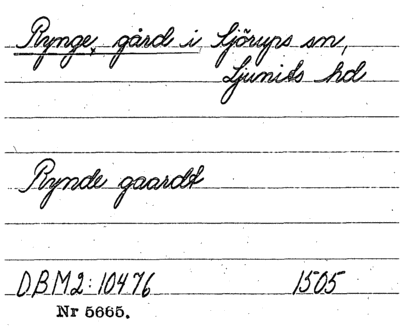 Rynge, gård i Sjörups sn,
Ljunits hd
Rynde gaardt
D.B.M2:10476 1505
Nr 5665.